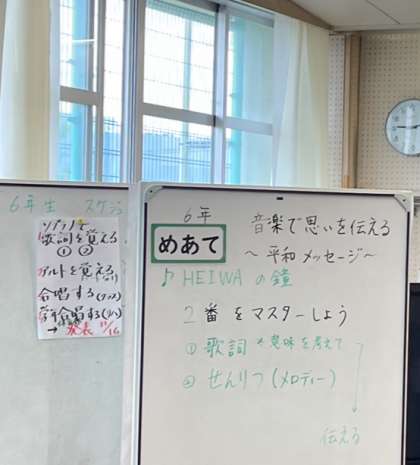 6年生 スケジ
ソプラノで
歌詞を覚える
① ②
アルトを覚える
合唱する(クラス)
学年合唱する(リハ)
→ 発表 11/16
6年
めあて
音楽で思いを伝える
～平和メッセージ～
♪ HEIWAの鐘
2番をマスターしよう
① 歌詞 や意味を考えて
② せんりつ(メロディー)
伝える